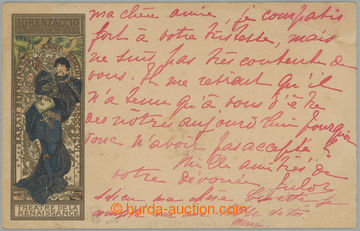 LORENZACCIO
THEATRE DE LA
RENAISSANCE
ma chère amie je compatis
fort à votre tristesse, mais
ne suis pas très contente de
vous. Il me revient qu'il
n'a tenu qu'à vous d'être
des nôtres aujourd'hui pourquoi
donc n'avoir pas accepté?
Mille amitiés de
votre dévouée
ma chère
burda-auction.com